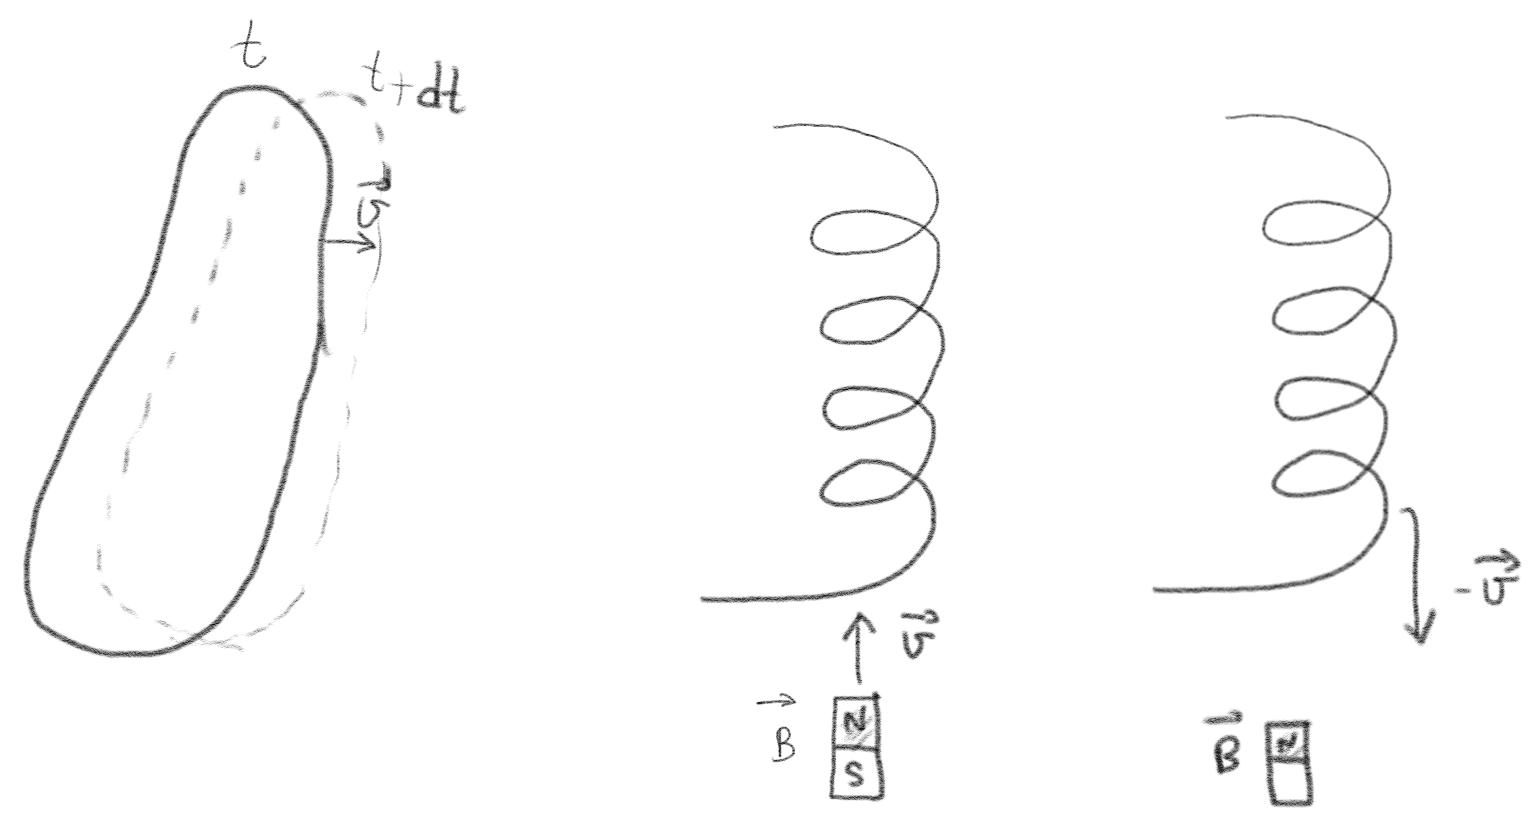 t
t+dt
v⃗
v⃗
B⃗
N
S
-v⃗
B⃗
N